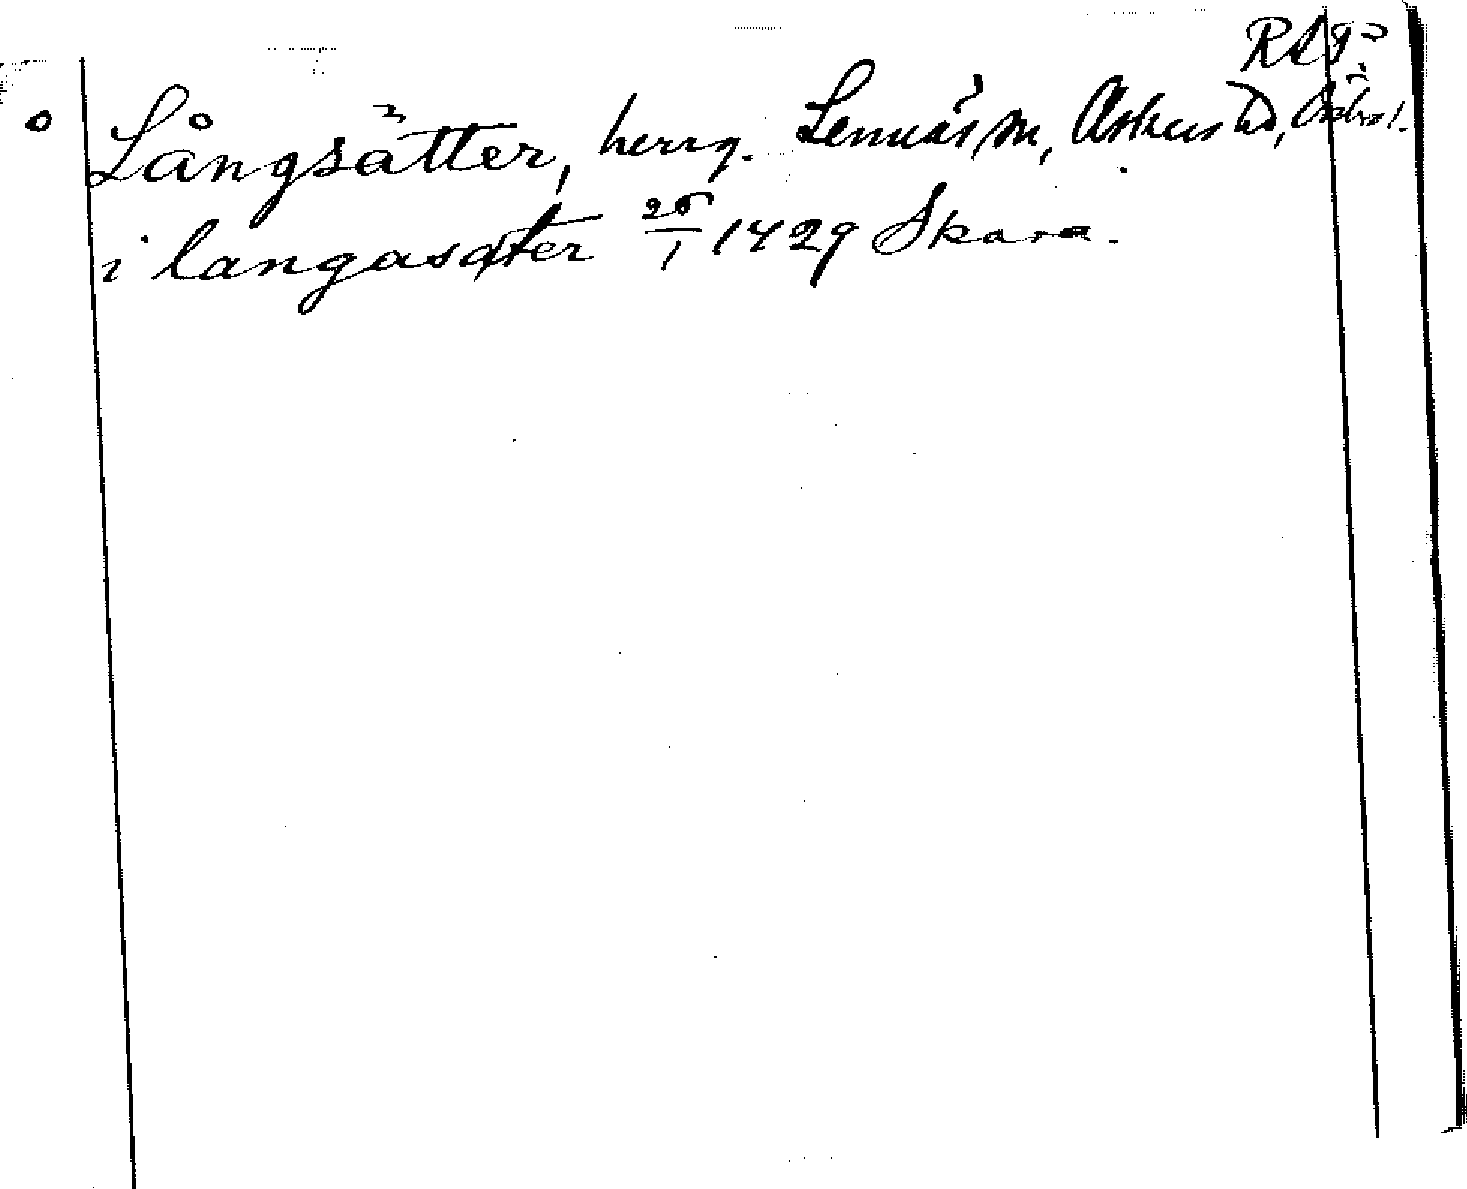 RAp
Långsätter, herrg. Lennäs sn, Askers hd, Örebro l.
i langasæter 25/1 1429 Skara.